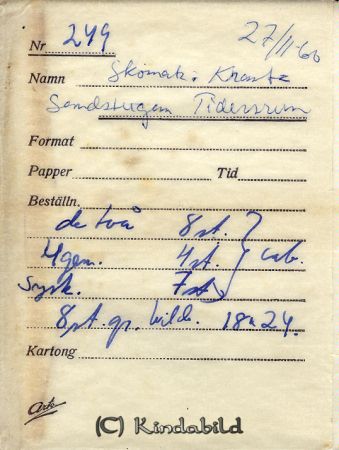 27/11-66
Nr 249
Namn Skomak. Krantz
Sandstugan Tidersrum
Format
Papper Tid
Beställn.
de två 8 st.
4 gen. 4 st. } cab.
Sysk. 7 st
8 st. gr. bild. 18x24.
Kartong
(C) Kindabild